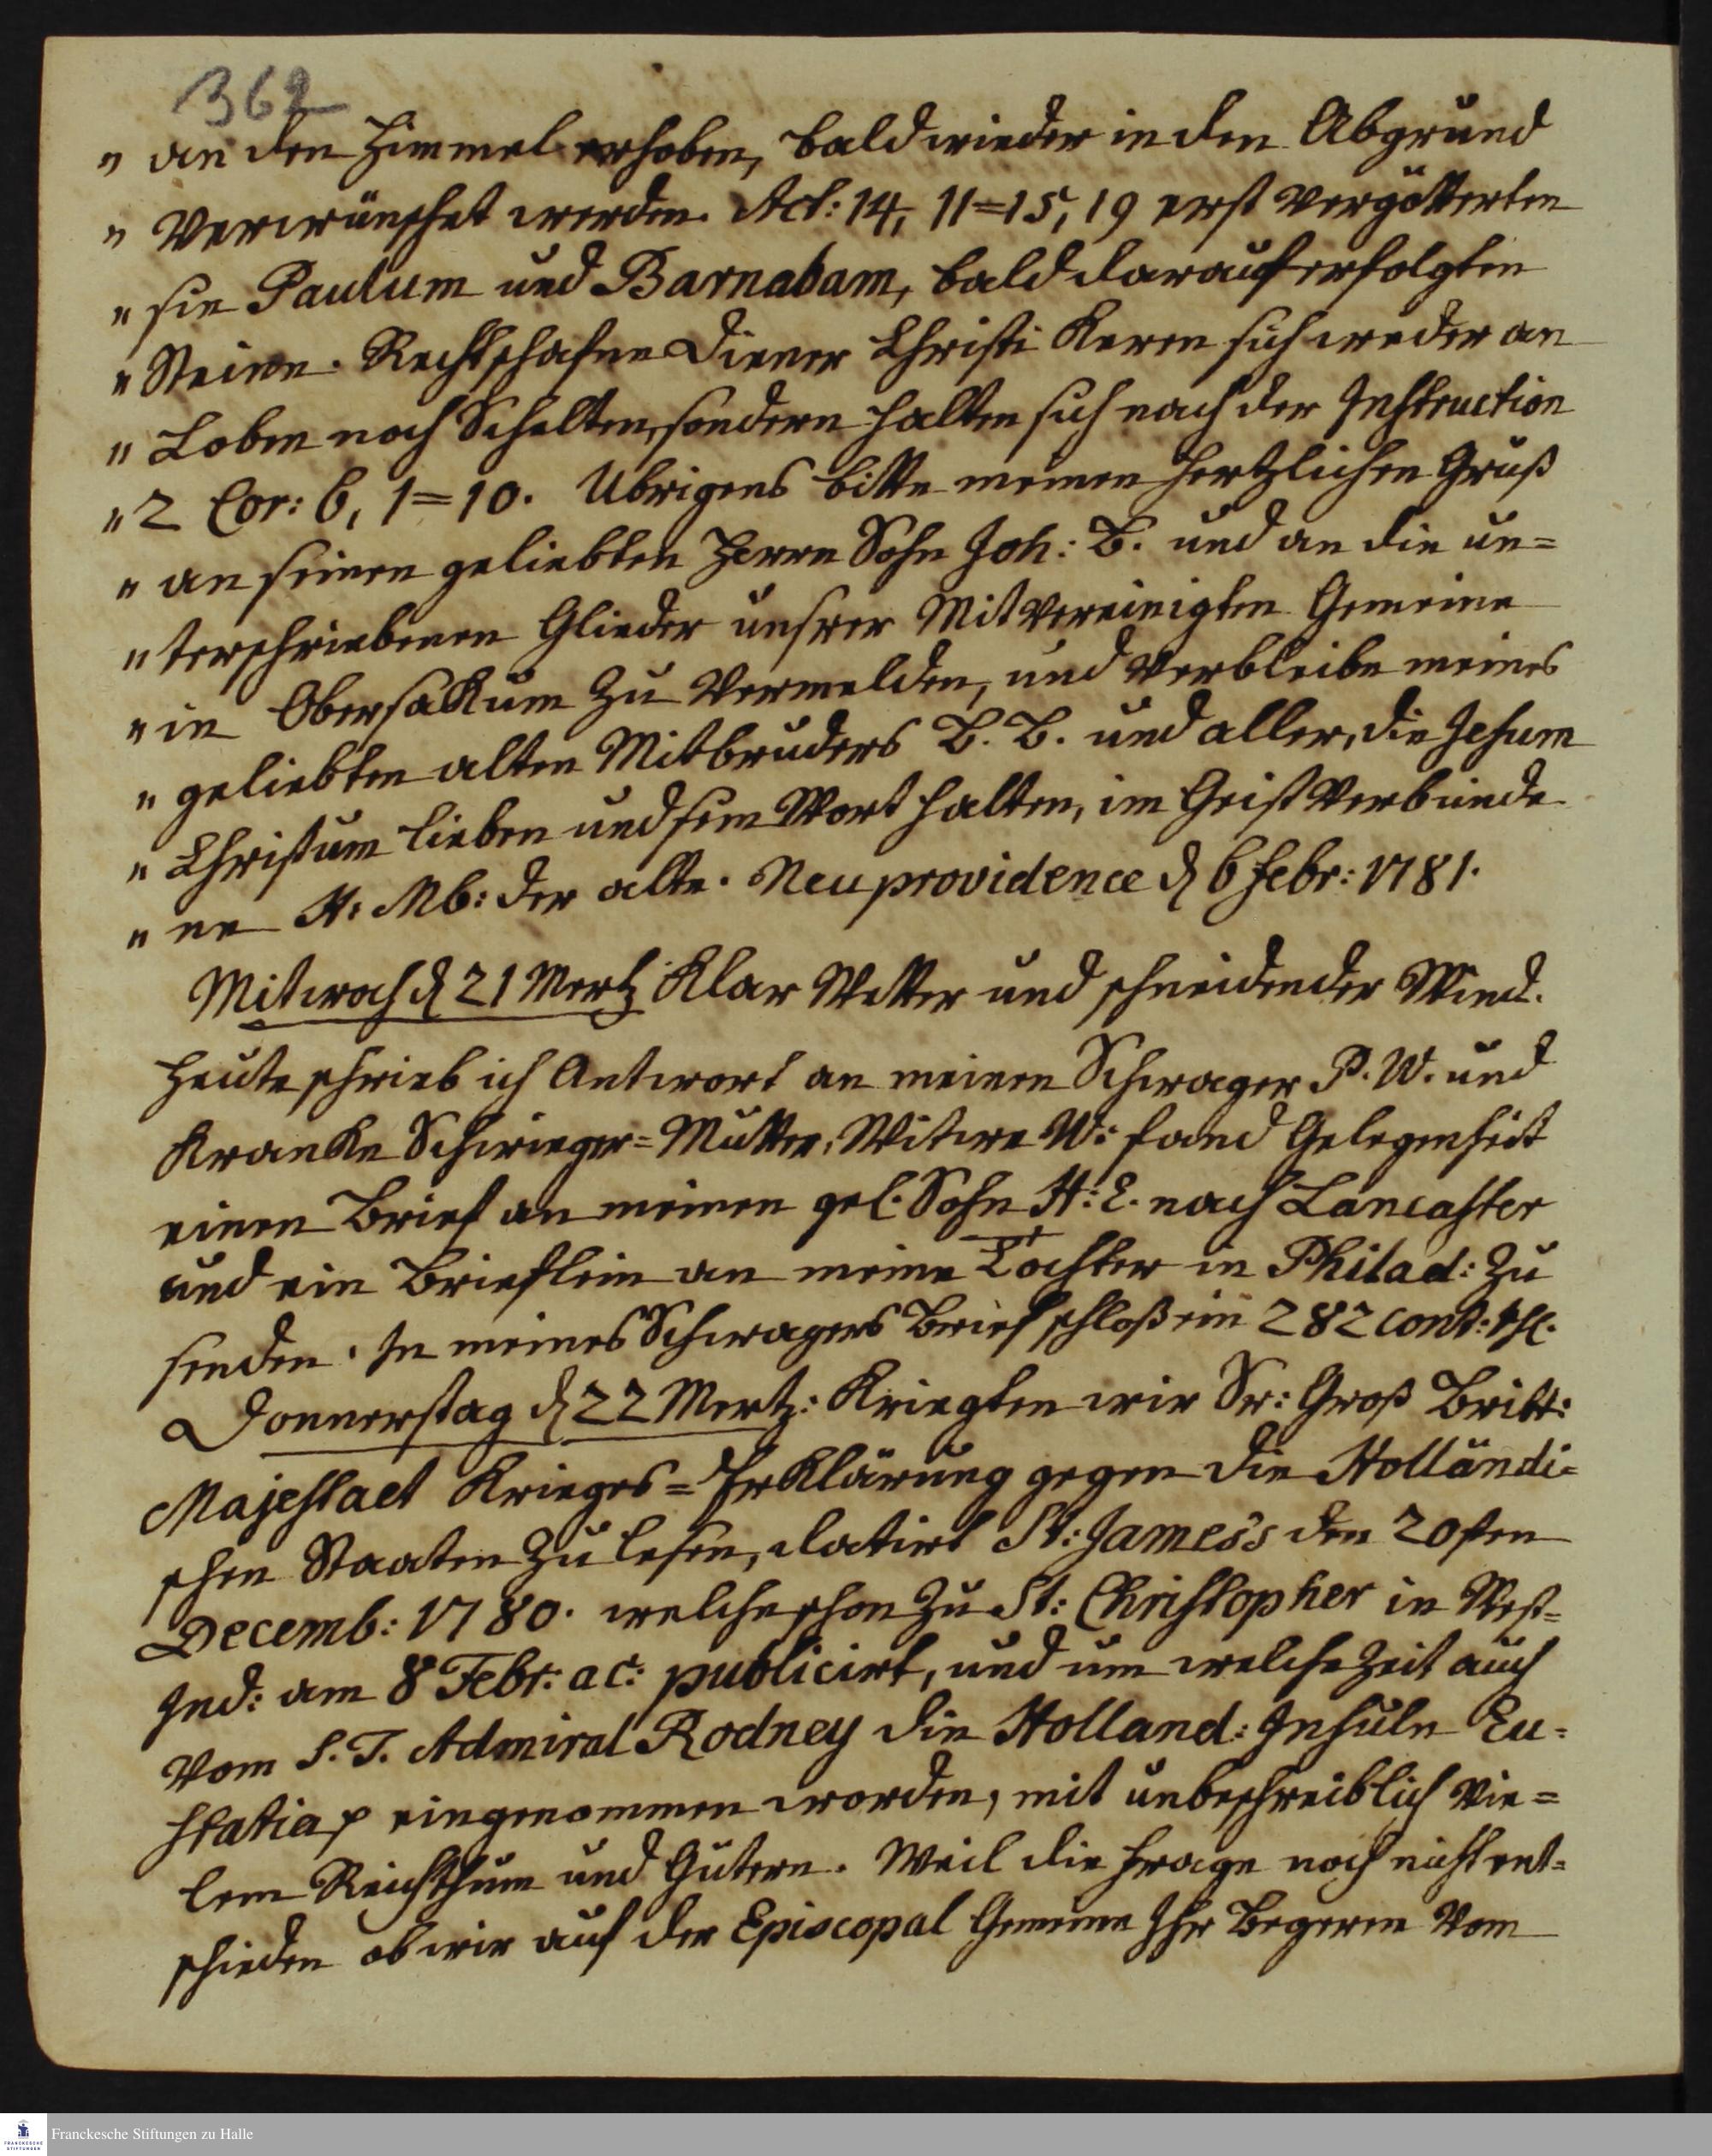 362
" an den Himmel erhoben, bald wieder in den Abgrund
" Verwünschet werden. Act: 14, 11=15, 19 erst vergötterten
" sie Paulum und Barnabam, bald darauf erfolgten
" Steine. Rechtschafne Diener Christi Keren sich weder an
" Loben noch Schelten, sondern halten sich nach der Instruction
" 2 Cor: 6, 1=10. Ubrigens bitte meinen hertzlichen Gruß
" an seinen geliebten Herrn Sohn Joh: B. und an die un=
" terschriebenen Glieder unsrer Mitvereinigten Gemeine
" in Obersakum zu Vermelden, und Verbleibe meines
" geliebten alten Mitbruders B. B. und aller, die Jesum
" Christum lieben und sein Wort halten, im Geist Verbunde
" ne H: Mb: der alte. Neuprovidence d 6 Febr: 1781.
Mitwoch d 21 Mertz Klar Wetter und schneidender Wind.
Heute schrieb ich Antwort an meinen Schwager P. W. und
Kranke Schwieger=Mutter, Witwe W: fand Gelegenheit
einen Brief an meinen gel. Sohn H: E. nach Lancaster
und ein Brieflein an meine Tochter in Philad: zu
senden. In meines Schwagers Brief schloß ein 282 cont: thl.
Donnerstag d 22 Mertz: Kriegten wir Sr: Groß Britt:
Majestaet Krieges=Erklärung gegen die Holländi=
schen Staaten zu lesen, datirt St: James's den 20sten
Decemb: 1780. welche schon zu St: Christopher in West=
Ind: am 8 Febr: a c: publicirt, und um welche Zeit auch
vom S. T. Admiral Rodney die Holland: Insuln Eu=
statia p eingenommen worden, mit unbeschreiblich vie=
lem Reichthum und Gütern. Weil die Frage noch nicht ent=
schieden ob wir auf der Episcopal Gemeine Ihr Begeren vom
Franckesche Stiftungen zu Halle